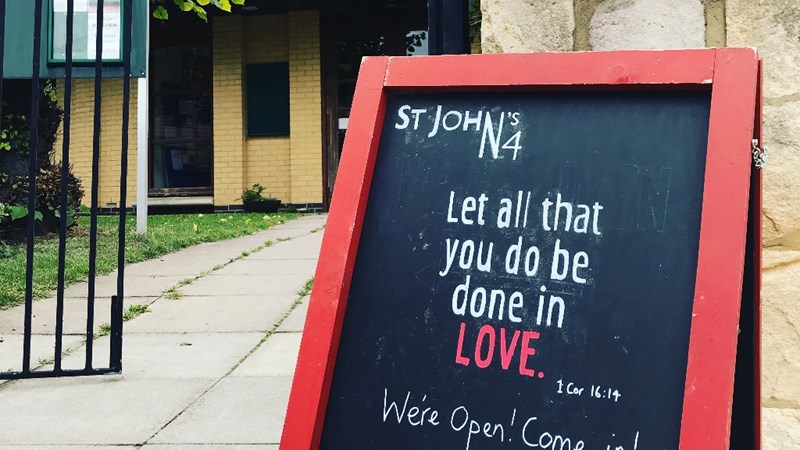 ST JOHN'S
N4
Let all that
you do be
done in
LOVE.
1 Cor 16:14
We're Open! Come in!